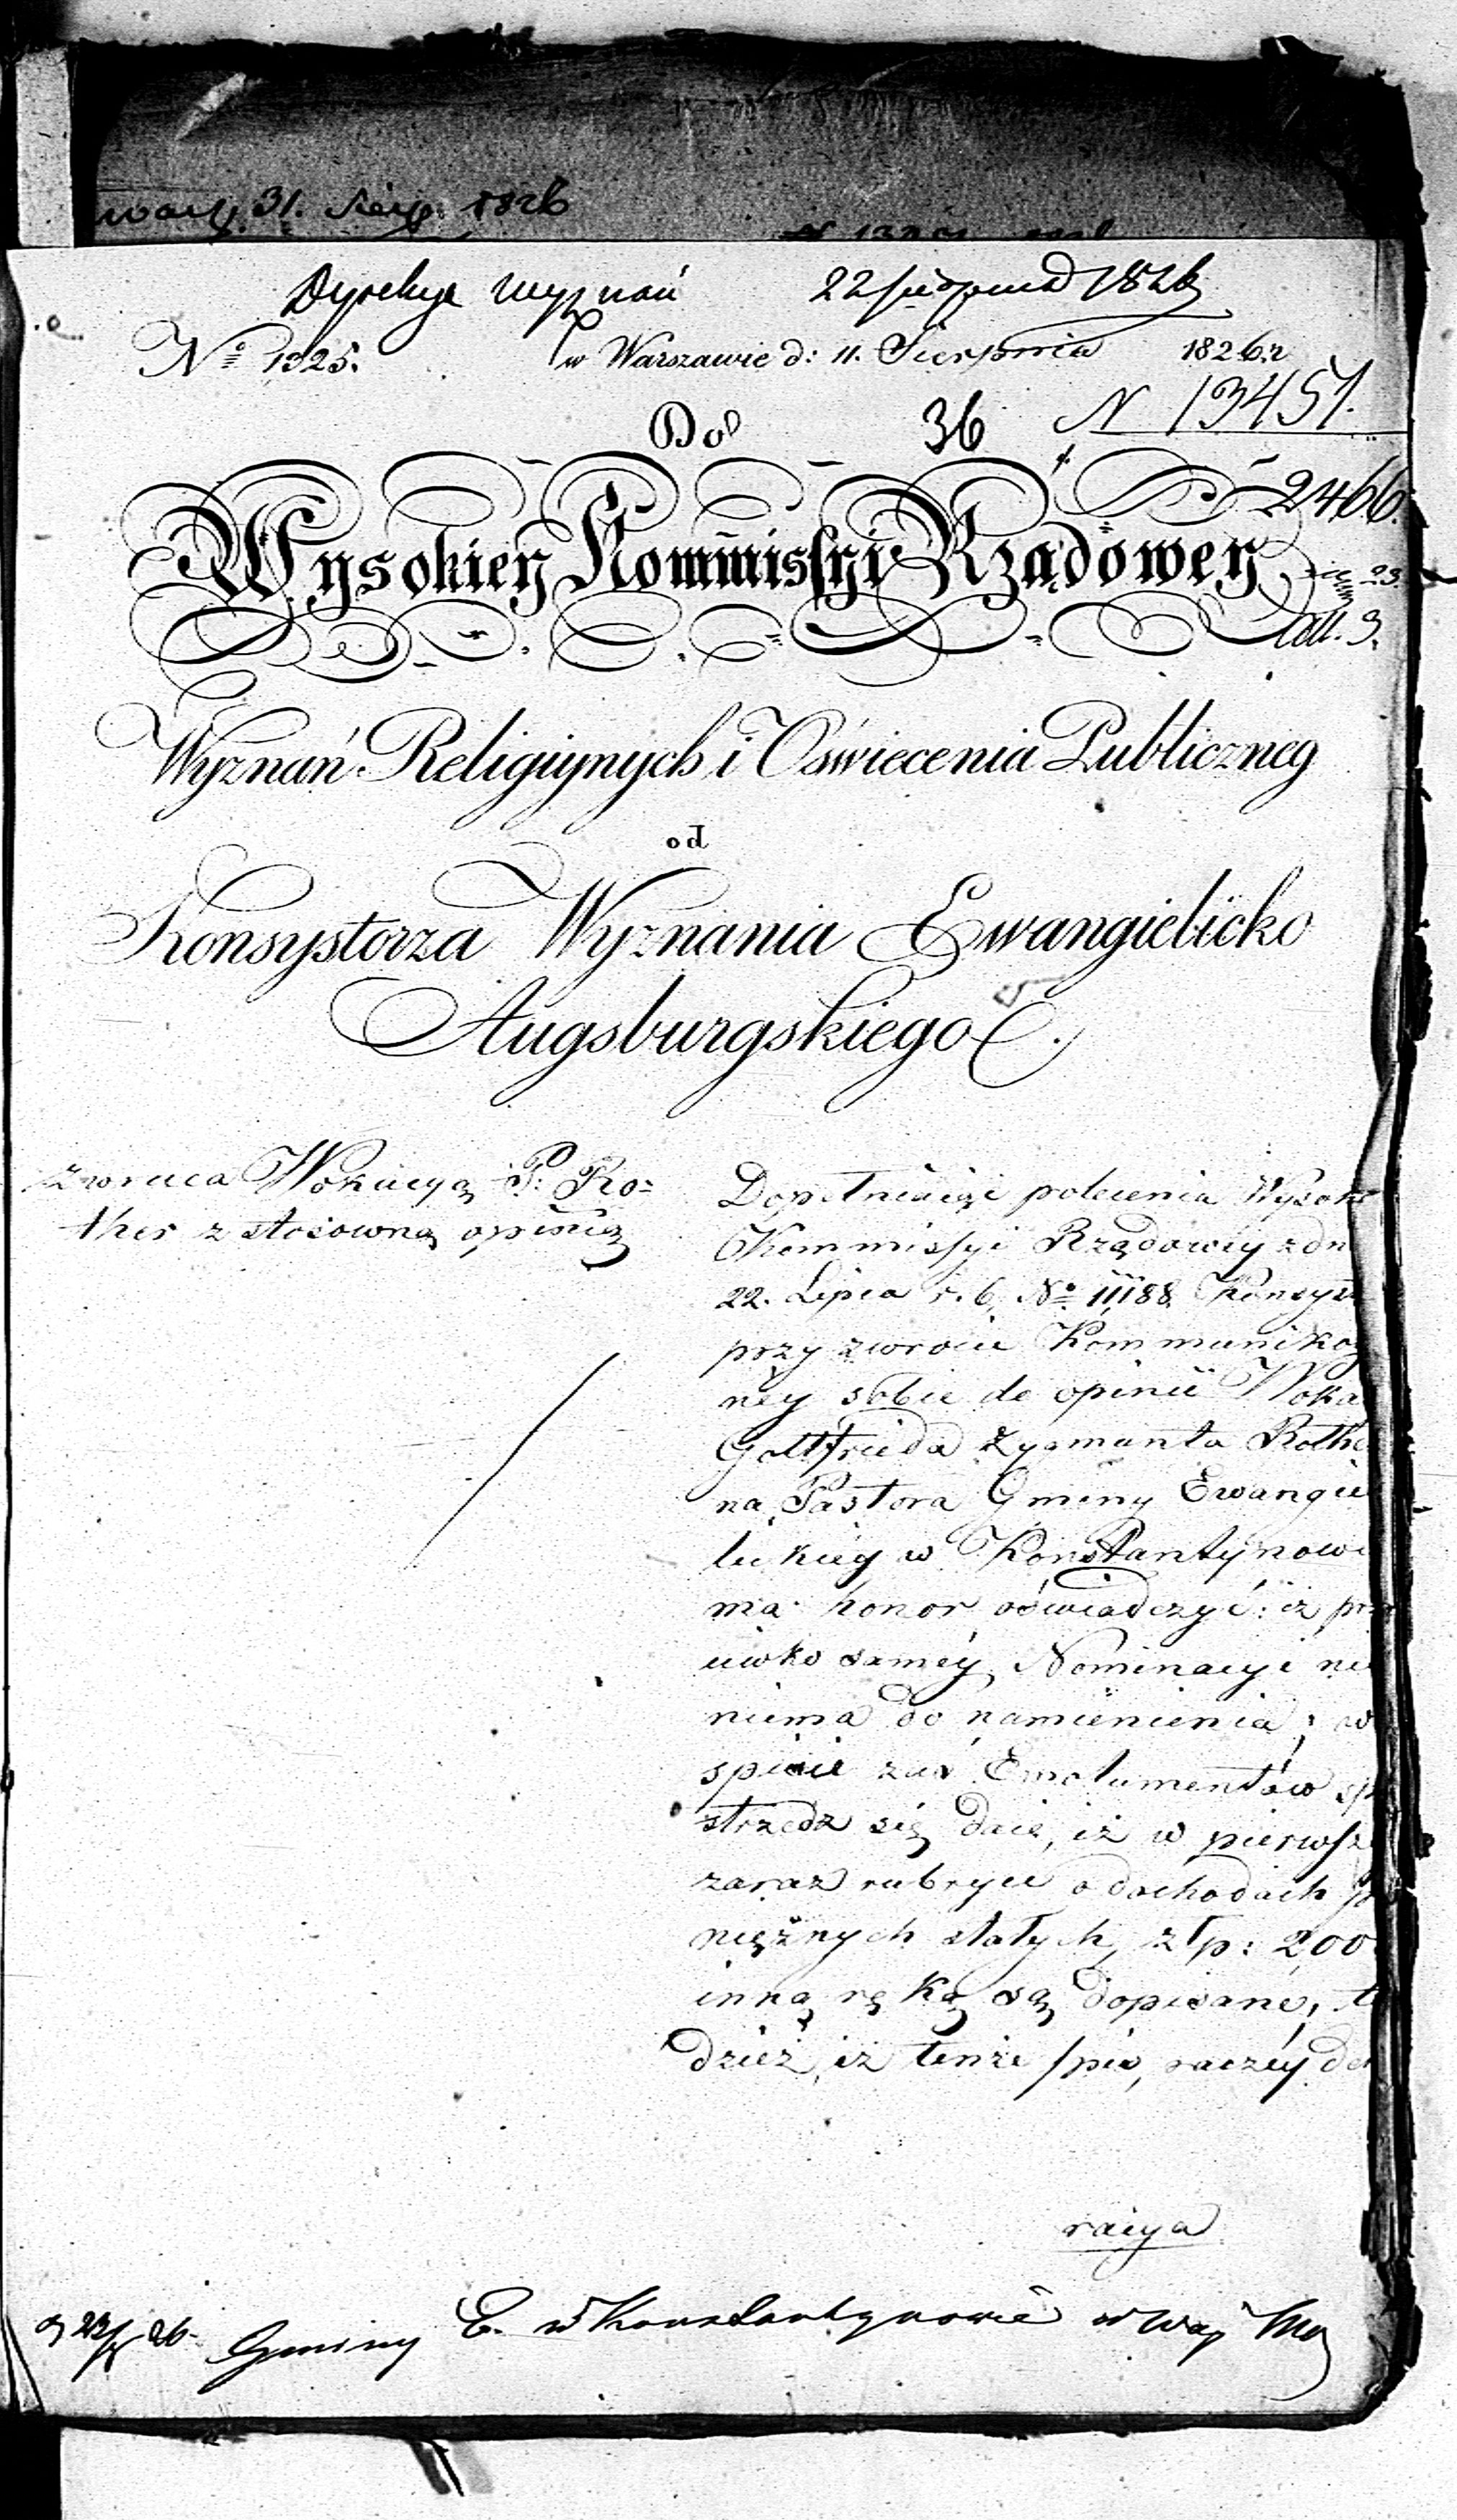 31. Sierp: 1826
Dyrekcya Wyznań 22 Sierpnia 1826
No 1325. w Warszawie d: 11. Sierpnia 1826.r
N 13451.
Do 36
2466.
Wysokiey Kommissyi Rządowey
23.
All. 3.
Wyznań Religiynych i Oświecenia Publiczneg
od
Konsystorza Wyznania Ewangielicko
Augsburgskiego.
zwraca Wokacyą P: Ro=
ther z stosowną opinią
Dopełniaiąc polecenia Wysok
Kommissyi Rządowey z dn
22. Lipca r. b. No 11,188. Konsys
przy zwrocie Kommuniko
ney sobie do opinii Woka
Gottfrieda Zygmunta Rothe
na Pastora Gminy Ewangie
lickiey w Konstantynowi
ma honor oświadczyć: iż prze
ciwko samey Nominacyi ni
niema do namienienia; w
spisie zaś Emolumentów sp
strzedz się daie, iż w pierwsz
zaraz rubryce o dochodach p
niężnych stałych, złp: 200
inną ręką są dopisane, t
dzież, iż tenże spis, raczey de
racya
23/8 26. Gminy E. w Konstantynowie w Woj Maz